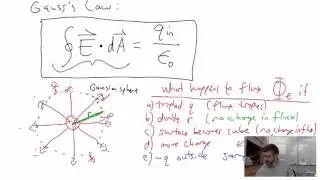 Gauss's Law:
∮ E⃗ · dA⃗ = q_in / ε₀
Gaussian sphere
what happens to flux Φ_E if
a) tripled q (flux triples)
b) double r (no change in flux)
c) surface becomes cube (no change in flux)
d) move charge
e) -q outside